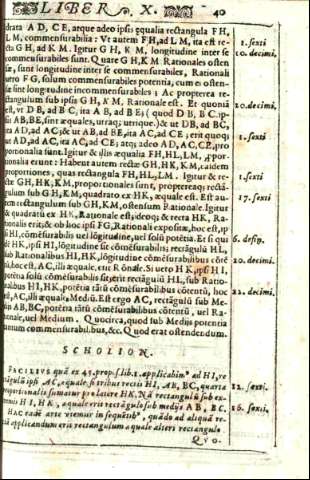 LIBER X. 40
drata AD, CE, atque adeo ipsis æqualia rectangula FH,
LM, commensurabilia: Vt autem FH, ad LM, ita est re- 1. sexti
cta GH, ad KM. Igitur GH, KM, longitudine inter se 10. decimi.
commensurabiles sunt. Quare GH, KM Rationales osten
sæ, sunt longitudine inter se commensurabiles, Rationali
vero FG, solum commensurabiles potentia, cum ei osten-
sæ sint longitudine incommensurabiles; Ac propterea re-
ctangulum sub ipsis GH, KM, Rationale est. Et quoniā 20. decimi.
est, vt DB, ad BC, ita AB, ad BE; (quod DB, BC, ip-
sis AB, BE, sint æquales, vtraq; vtrique.) & vt DB, ad BC,
ita AD, ad AC; & vt AB, ad BE, ita AC, ad CE; erit quoq; 1. sexti
vt AD, ad AC, ita AC, ad CE; atq; adeo AD, AC, CE, pro-
portionalia sunt. Igitur & illis æqualia FH, HL, LM, propor-
tionalia erunt: Habent autem rectæ GH, HK, KM, eādem
proportiones, quas rectangula FH, HL, LM. Igitur & re- 1. sexti
ctæ GH, HK, KM, proportionales sunt, propterea q; rectā-
gulum sub GH, KM, quadrato ex HK, æquale est. Est au- 17. sexti
tem rectangulum sub GH, KM, ostensum Rationale. Igitur
& quadratū ex HK, Rationale est; ideoq; & recta HK, Ra-
tionalis erit; & ob hoc ipsi FG, Rationali expositæ, hoc est, ip
si HI, cōmēsurabilis uel lōgitudine, uel solū potētia. Et si qui 6. defin.
dē HK, ipsi HI, lōgitudine sit cōmēsurabilis; rectāgulū HL,
sub Rationalibus HI, HK, lōgitudine cōmēsurabilibus cōtē 20. decimi.
tū, hoc est, AC, illi æquale, erit Rōnale. Si uero HK, ipsi HI,
potētia solū cōmēsurabilis fuerit rectāgulū HL, sub Ratio-
nalibus HI, HK, potētia tātū cōmēsurabilibus cōtentū, hoc 22. decimi.
est, AC, illi æquale, Mediū. Est ergo AC, rectāgulū sub Me-
dijs AB, BC, potētia tātū cōmēsurabilibus cōtentū, uel Ra-
tionale, uel Medium. Quocirca, quod sub Medijs potentia
tantum commensurabilibus, &c. Quod erat ostendendum.
SCHOLION.
FACILIVS quā ex 45. prop. lib. 1. applicabim⁹ ad HI, re-
ctāgulū ipsi AC, æquale, si tribus rectis HI, AB, BC, quarta 12. sexti.
proportionalis sumatur pro latere HK. Nā rectangulū sub ex-
tremis HI, HK, æquale erit rectāgulo sub medijs AB, BC. 16. sexti.
HAC eadē arte vtemur in sequētib⁹, quādo ad aliquā re-
ctā applicandum erit rectangulum æquale alteri rectangulo
Quo-